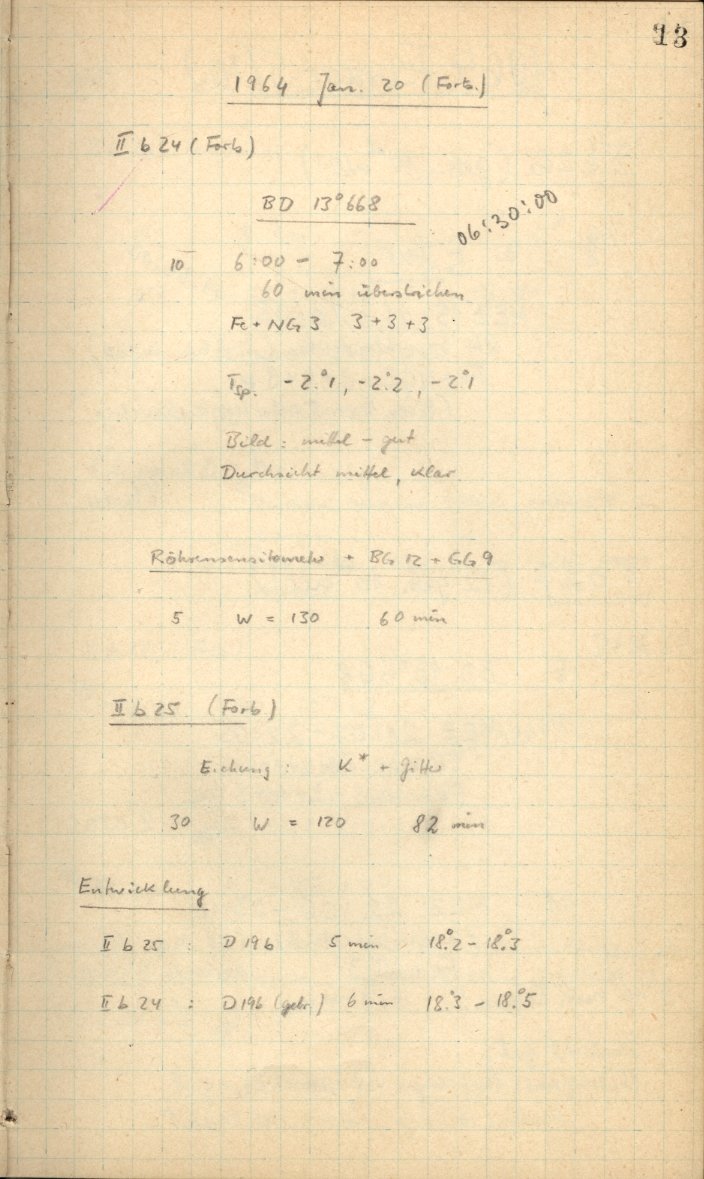 13
1964 Jan. 20 (Forts.)
II b 24 (Forts)
BD 13°668
06:30:00
10 6:00 - 7:00
60 min überstrichen
Fe + NG 3 3 + 3 + 3
T Sp. -2°.1, -2°.2, -2°.1
Bild : mittel - gut
Durchsicht mittel, klar
Röhrensensitometer + BG 12 + GG 9
5 W = 130 60 min
II b 25 (Forts)
Eichung : K* + Gitter
30 W = 120 82 min
Entwicklung
II b 25 : D 19b 5 min 18°.2 - 18°.3
II b 24 : D 19b (gebr.) 6 min 18°.3 - 18°.5